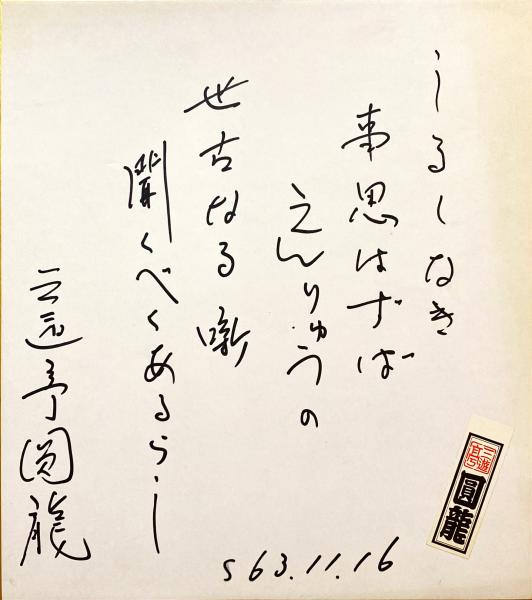 しるしなき
事思はずば
えんりゅうの
世古なる噺
聞くべくあるらし
三遊亭圓龍
S63.11.16
三遊亭
圓龍